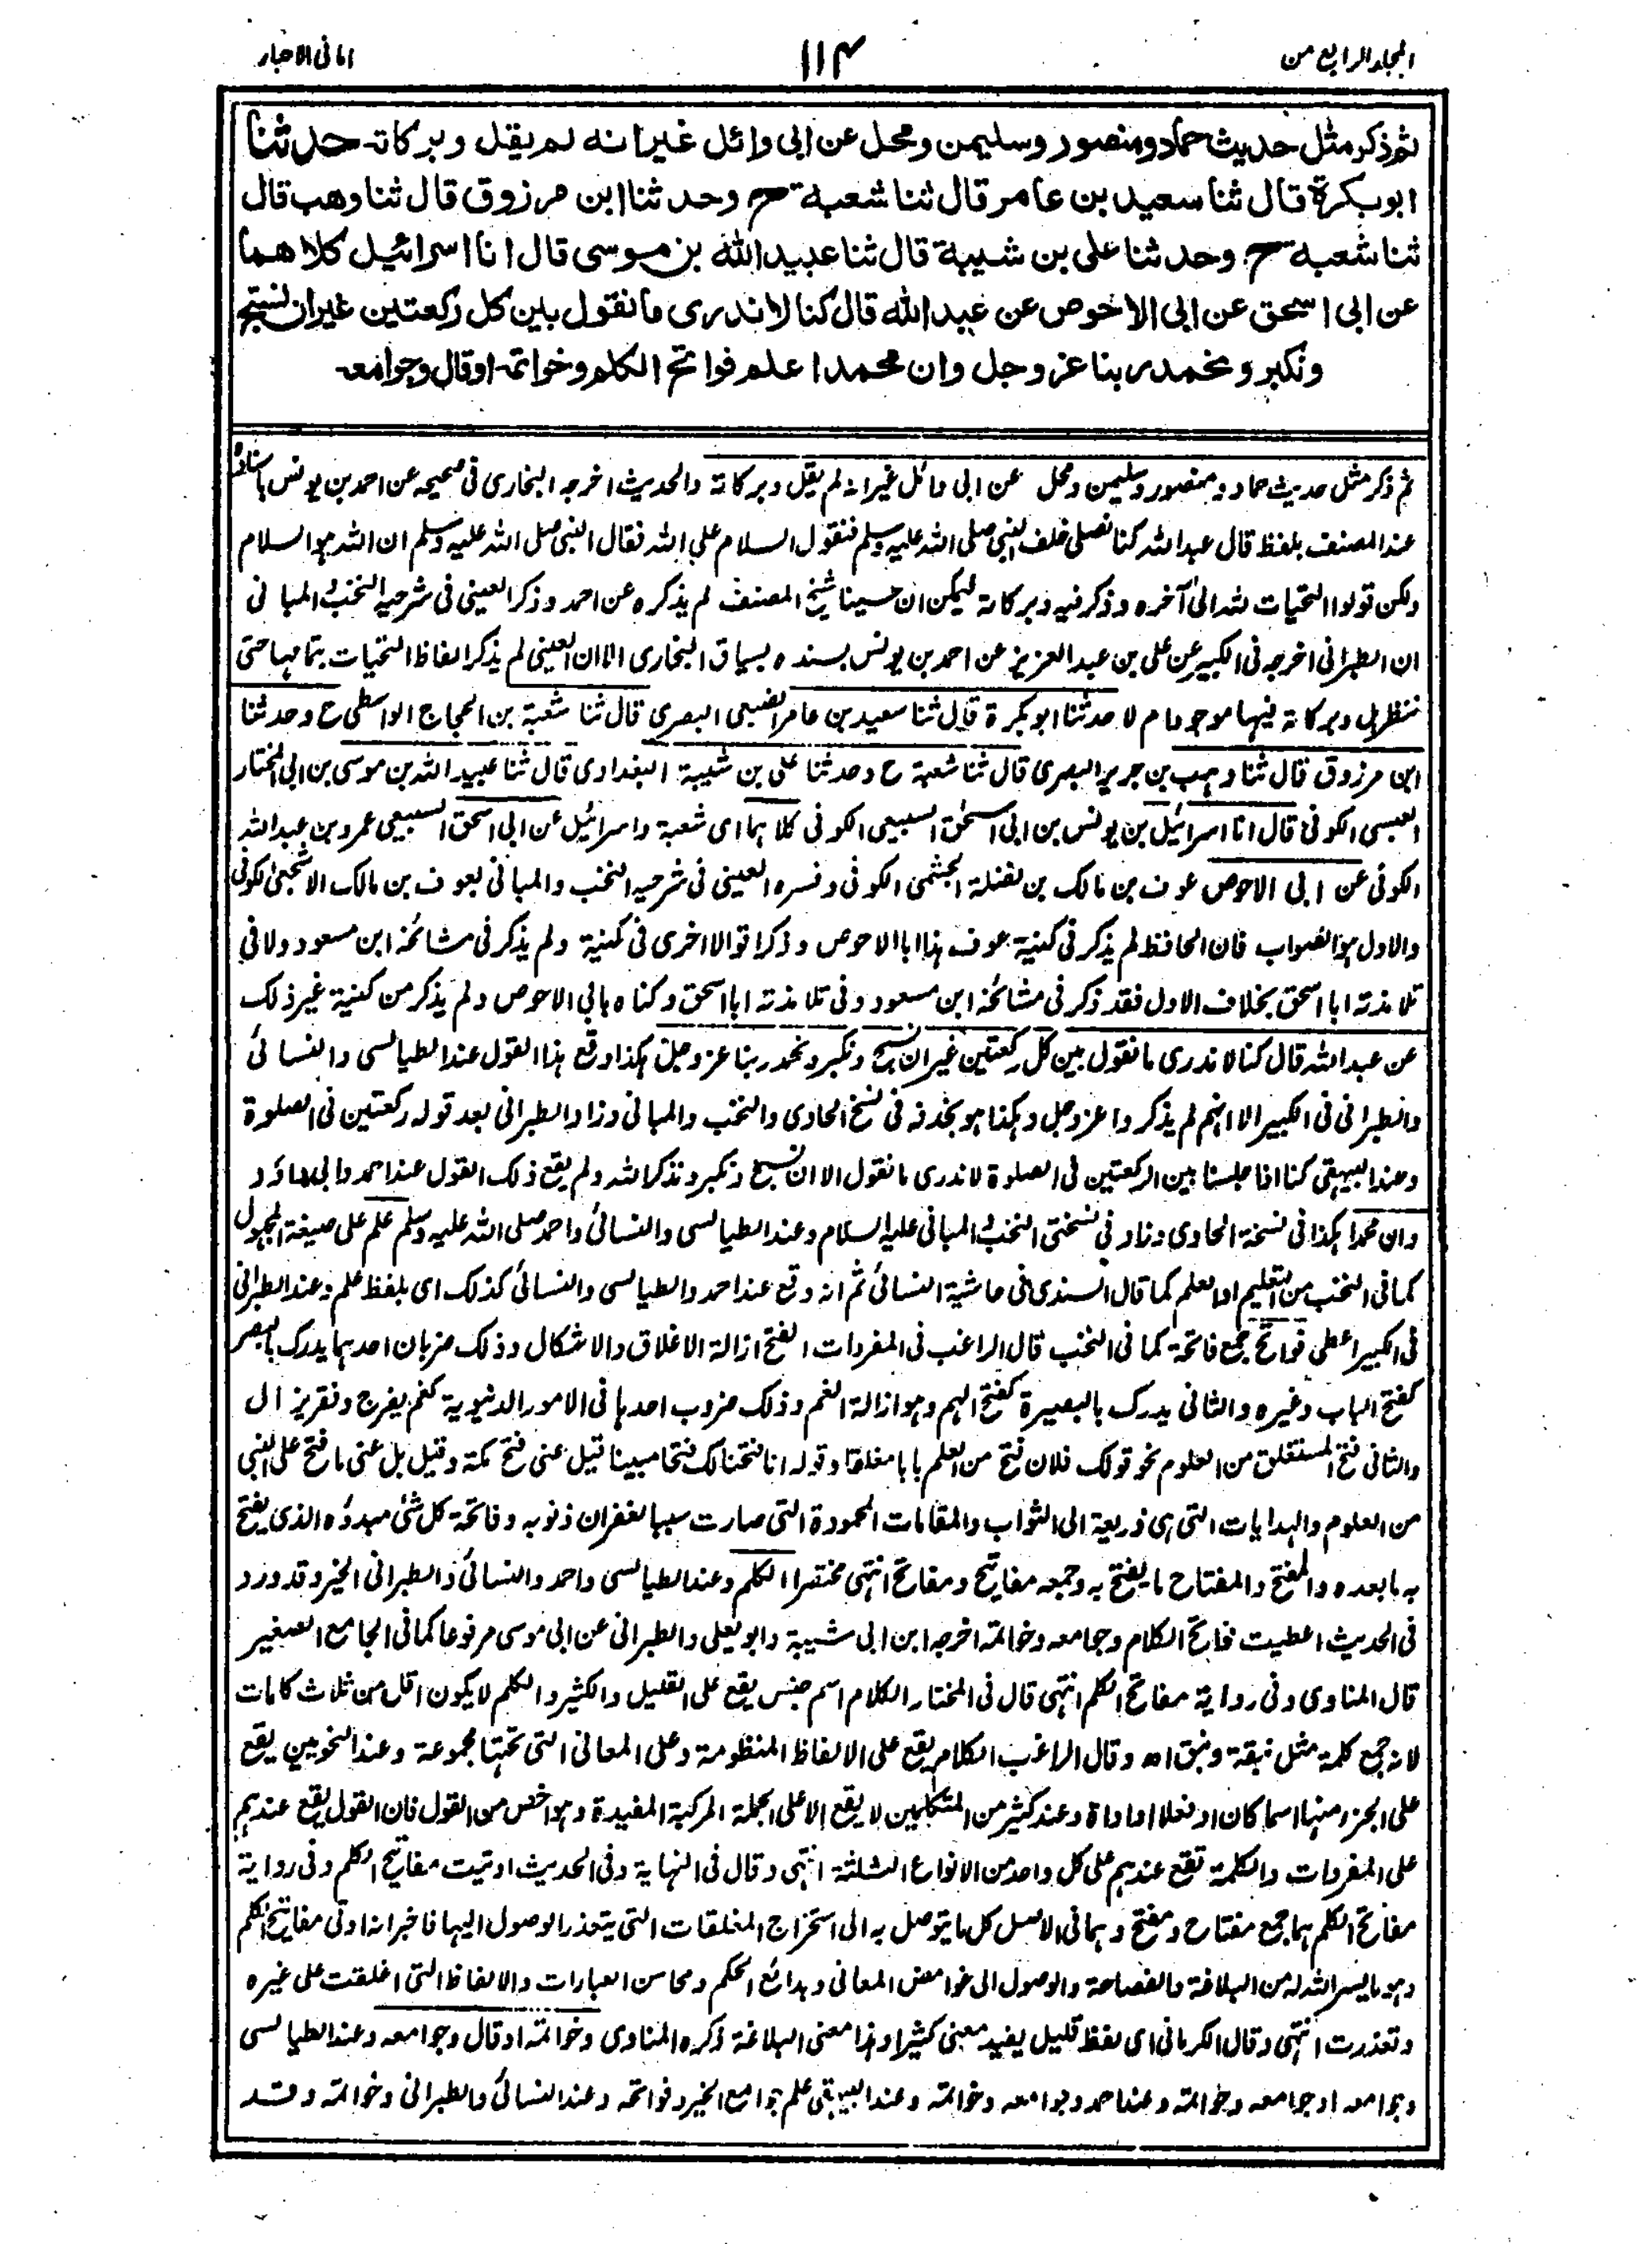 المجلد الرابع من
١١٤
امانی الاحبار
ثم ذکر مثل حدیث حماد ومنصور وسلیمن ومحل عن ابی وائل غیرانه لم یقل وبرکاته حدثنا
ابوبکرة قال ثنا سعید بن عامر قال ثنا شعبة ح وحدثنا ابن مرزوق قال ثنا وهب قال
ثنا شعبة ح وحدثنا علی بن شیبة قال ثنا عبیدالله بن موسی قال انا اسرائیل کلاهما
عن ابی اسحق عن ابی الاحوص عن عبدالله قال کنا لا ندری ما نقول بین کل رکعتین غیران نسبح
ونکبر ونحمد ربنا عزوجل وان محمدا علم فواتح الکلم وخواتمه اوقال وجوامعه
ثم ذکر مثل حدیث حماد ومنصور وسلیمن ومحل عن ابی وائل غیرانه لم یقل وبرکاته والحدیث اخرجه البخاری فی صحیحه عن احمد بن یونس باسناده
عندالمصنف بلفظ قال عبدالله کنا نصلی خلف النبی صلی الله علیه وسلم فنقول السلام علی الله فقال النبی صلی الله علیه وسلم ان الله هو السلام
ولکن قولوا التحیات لله الی آخره وذکر فیه وبرکاته لیکن ان حسینا شیخ المصنف لم یذکره عن احمد وذکر العینی فی شرحیه النخب والمبانی
ان الطبرانی اخرجه فی الکبیر عن علی بن عبد العزیز عن احمد بن یونس بسنده بسیاق البخاری الا ان العینی لم یذکر الفاظ التحیات بتمامها حتی
ننظر هل وبرکاته فیها موجودا م لا حدثنا ابو بکرة قال ثنا سعید بن عامر الضبعی البصری قال ثنا شعبة بن الحجاج الواسطی ح وحدثنا
ابن مرزوق قال ثنا وهب بن جریر البصری قال ثنا شعبة ح وحدثنا علی بن شیبة البغدادی قال ثنا عبید الله بن موسی بن ابی المختار
العبسی الکوفی قال انا اسرائیل بن یونس بن ابی اسحق السبیعی الکوفی کلاهما ای شعبة واسرائیل عن ابی اسحق السبیعی عمرو بن عبدالله
الکوفی عن ابی الاحوص عوف بن مالک بن نضلة الجشمی الکوفی وفسره العینی فی شرحیه النخب والمبانی بعوف بن مالک الاشجعی الکوفی
والاول هو الصواب فان الحافظ لم یذکر فی کنیة عوف هذا ابا الاحوص وذکر اقوالا اخری فی کنیة ولم یذکر فی مشائخه ابن مسعود ولا فی
تلامذته ابا اسحق بخلاف الاول فقد ذکر فی مشائخه ابن مسعود وفی تلامذته ابا اسحق وکناه بابی الاحوص ولم یذکر من کنیة غیر ذلک
عن عبدالله قال کنا لا ندری ما نقول بین کل رکعتین غیران نسبح ونکبر ونحمد ربنا عزوجل هکذا وقع هذا القول عند الطیالسی والنسائی
والطبرانی فی الکبیر الا انهم لم یذکروا عزوجل وهکذا هو بحذفه فی نسخ الحاوی والنخب والمبانی وزاد الطبرانی بعد قوله رکعتین فی الصلوة
وعند البیهقی کنا اذا جلسنا بین الرکعتین فی الصلوة لا ندری ما نقول الا ان نسبح ونکبر ونذکر الله ولم یقع ذلک القول عند احمد وابی داؤد
وان محمدا هکذا فی نسخة الحاوی وزاد فی نسختی النخب والمبانی علیه السلام وعند الطیالسی والنسائی واحمد صلی الله علیه وسلم علم علی صیغة المجهول
کما فی النخب من التعلیم او العلم کما قال السندی فی حاشیة النسائی ثم انه وقع عند احمد والطیالسی والنسائی کذلک ای بلفظ علم وعند الطبرانی
فی الکبیر اعطی فواتح جمع فاتحة کما فی النخب قال الراغب فی المفردات الفتح ازالة الاغلاق والاشکال وذلک ضربان احدهما یدرک بالبصر
کفتح الباب وغیره والثانی یدرک بالبصیرة کفتح الهم وهو ازالة الغم وذلک ضروب احدها فی الامور الدنیویة کغم یفرج وفقر یزال
والثانی فتح المستغلق من العلوم نحو قولک فلان فتح من العلم بابا مغلقا وقوله انا فتحنا لک فتحا مبینا قیل عنی فتح مکة وقیل بل عنی ما فتح علی النبی
من العلوم والهدایات التی هی ذریعة الی الثواب والمقامات المحمودة التی صارت سببا لغفران ذنوبه وفاتحة کل شئ مبدؤه الذی یفتح
به ما بعده والمفتح والمفتاح ما یفتح به وجمعه مفاتیح ومفاتح انتهی مختصرا الکلم وعند الطیالسی واحمد والنسائی والطبرانی الخیر وقد ورد
فی الحدیث اعطیت فواتح الکلام وجوامعه وخواتمه اخرجه ابن ابی شیبة وابو یعلی والطبرانی عن ابی موسی مرفوعا کما فی الجامع الصغیر
قال المناوی وفی روایة مفاتح الکلم انتهی قال فی المختار الکلام اسم جنس یقع علی القلیل والکثیر والکلم لا یکون اقل من ثلاث کلمات
لانه جمع کلمة مثل نبقة ونبق اه وقال الراغب الکلام یقع علی الالفاظ المنظومة وعلی المعانی التی تحتها مجموعة وعند النحویین یقع
علی الجزء منها اسما کان او فعلا او اداة وعند کثیر من المتکلمین لا یقع الا علی الجملة المرکبة المفیدة وهو اخص من القول فان القول یقع عندهم
علی المفردات والکلمة تقع عندهم علی کل واحد من الانواع الثلثة انتهی وقال فی النهایة وفی الحدیث اوتیت مفاتیح الکلم وفی روایة
مفاتح الکلم هما جمع مفتاح ومفتح وهما فی الاصل کل ما یتوصل به الی استخراج المغلقات التی یتعذر الوصول الیها فاخبر انه اوتی مفاتیح الکلم
وهو ما یسر الله له من البلاغة والفصاحة والوصول الی غوامض المعانی وبدائع الحکم ومحاسن العبارات والالفاظ التی اغلقت علی غیره
وتعذرت انتهی وقال الکرمانی ای لفظ قلیل یفید معنی کثیرا وهذا معنی البلاغة ذکره المناوی وخواتمه او قال وجوامعه وعند الطیالسی
وجوامعه او جوامعه وخواتمه وعند احمد وجوامعه وخواتمه وعند البیهقی علم جوامع الخیر وفواتحه وعند النسائی والطبرانی وخواتمه وقد